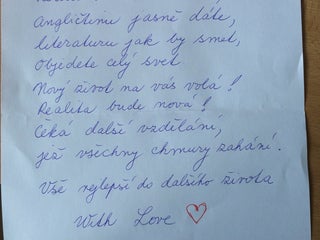 Angličtinu jasně dáte,
literaturu jak by smet,
Objedete celý svět
Nový život na vás volá!
Realita bude nová!
Čeká další vzdělání,
jež všechny chmury zahání.
Vše nejlepší do dalšího života
With Love